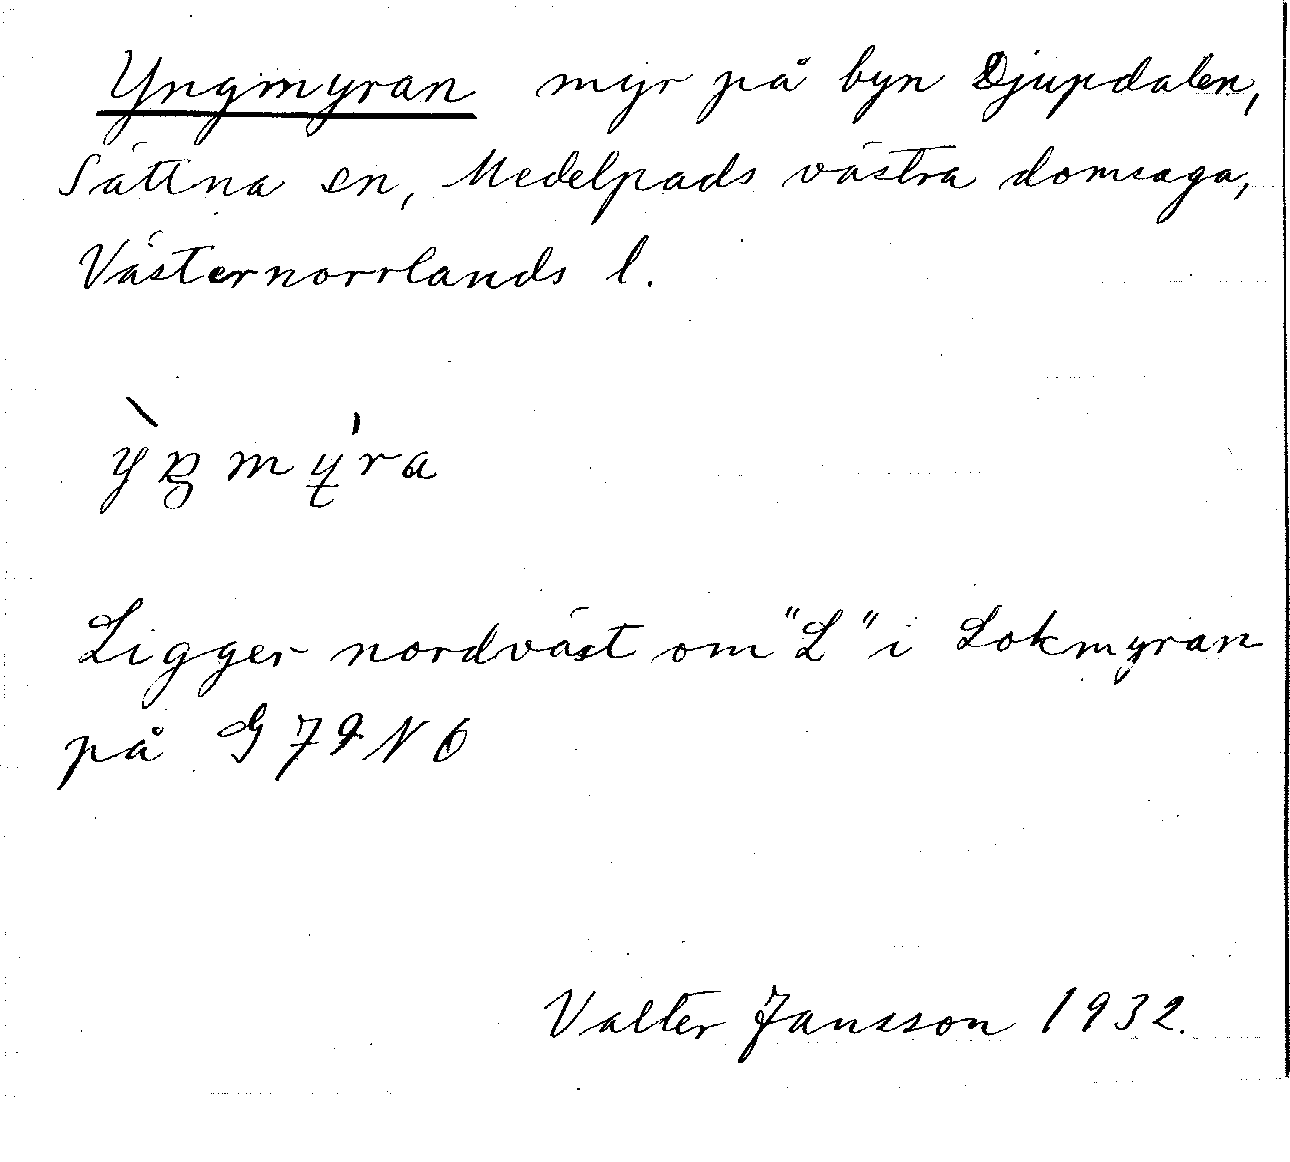 Yngmyran myr på byn Djupdalen,
Sättna sn, Medelpads västra domsaga,
Västernorrlands l.
Ligger nordväst om "L" i Lokmyran
på G 79 N O
Valter Jansson 1932.